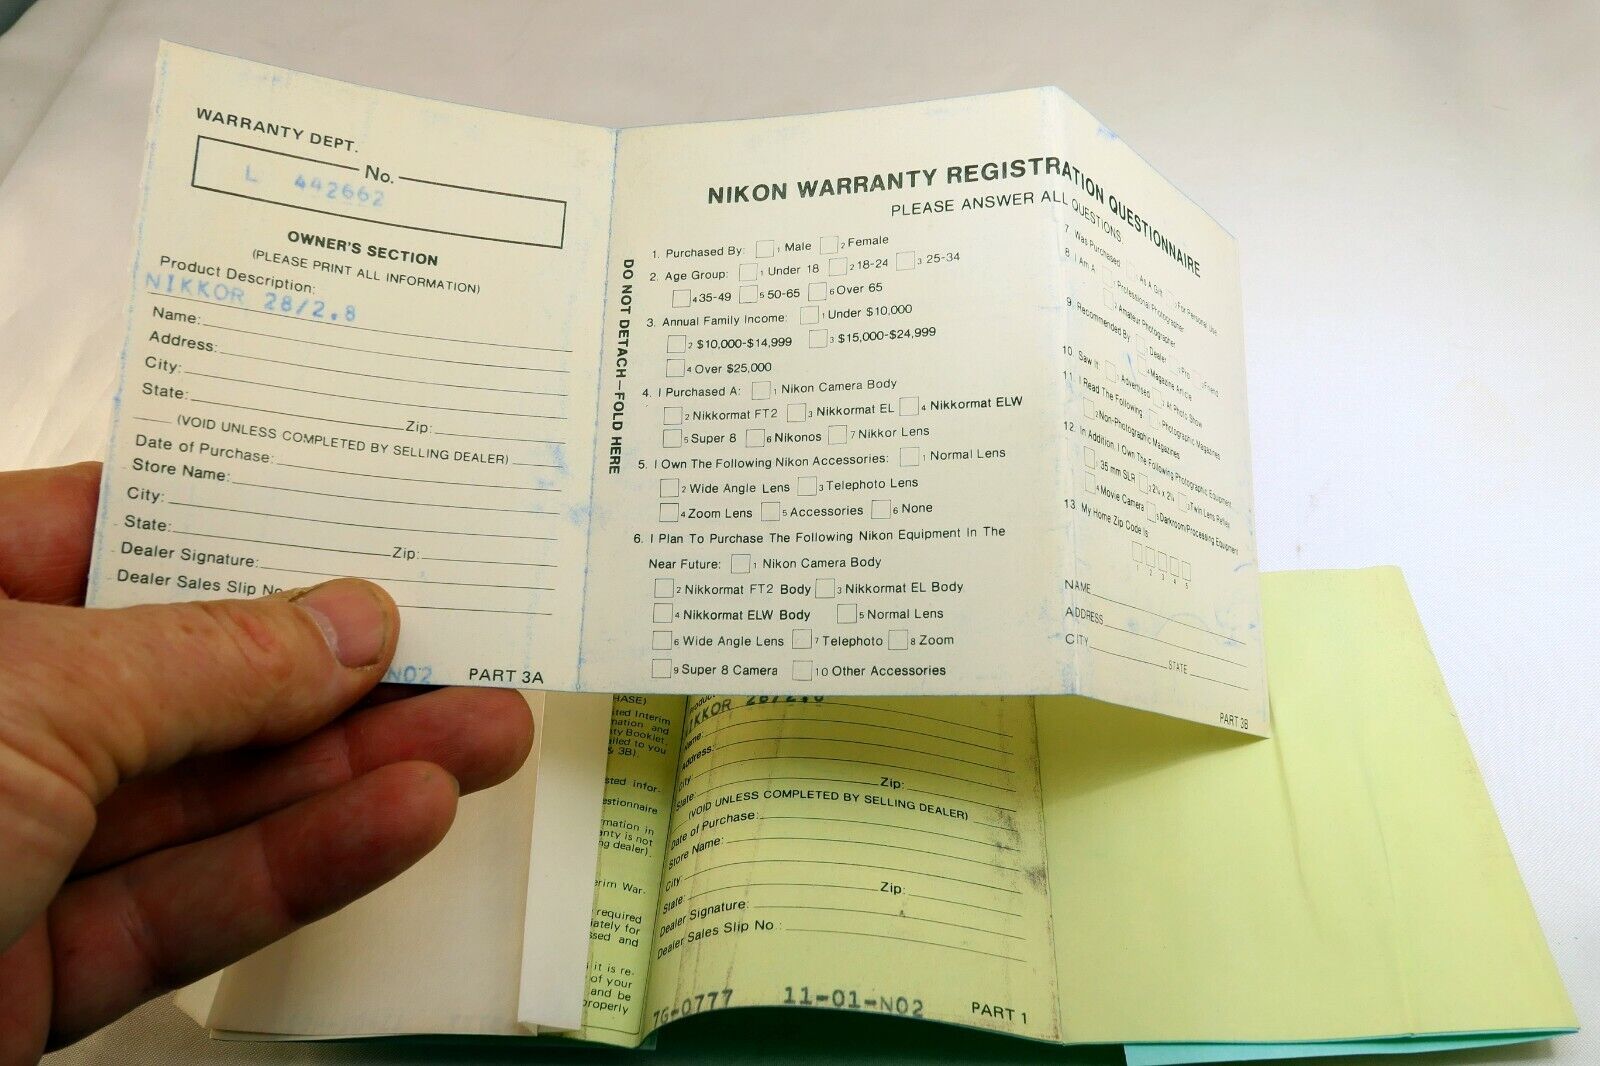 WARRANTY DEPT.
No.
L 442662
OWNER'S SECTION
(PLEASE PRINT ALL INFORMATION)
Product Description:
NIKKOR 28/2.8
Name:
Address:
City:
State: Zip:
(VOID UNLESS COMPLETED BY SELLING DEALER)
Date of Purchase:
Store Name:
City:
State: Zip:
Dealer Signature:
Dealer Sales Slip No
N02 PART 3A
DO NOT DETACH—FOLD HERE
NIKON WARRANTY REGISTRATION QUESTIONNAIRE
PLEASE ANSWER ALL QUESTIONS
1. Purchased By: 1 Male 2 Female
2. Age Group: 1 Under 18 2 18-24 3 25-34
4 35-49 5 50-65 6 Over 65
3. Annual Family Income: 1 Under $10,000
2 $10,000-$14,999 3 $15,000-$24,999
4 Over $25,000
4. I Purchased A: 1 Nikon Camera Body
2 Nikkormat FT2 3 Nikkormat EL 4 Nikkormat ELW
5 Super 8 6 Nikonos 7 Nikkor Lens
5. I Own The Following Nikon Accessories: 1 Normal Lens
2 Wide Angle Lens 3 Telephoto Lens
4 Zoom Lens 5 Accessories 6 None
6. I Plan To Purchase The Following Nikon Equipment In The
Near Future: 1 Nikon Camera Body
2 Nikkormat FT2 Body 3 Nikkormat EL Body
4 Nikkormat ELW Body 5 Normal Lens
6 Wide Angle Lens 7 Telephoto 8 Zoom
9 Super 8 Camera 10 Other Accessories
7. Was Purchased 1 As A Gift 2 For Personal Use
8. I Am A 1 Professional Photographer
2 Amateur Photographer
9. Recommended By 1 Dealer 2 Pro 3 Friend
4 Magazine Article
10. Saw It: 1 Advertised 2 At Photo Show
11. I Read The Following 1 Photographic Magazines
2 Non-Photographic Magazines
12. In Addition, I Own The Following Photographic Equipment
1 35 mm SLR 2 2¼ x 2¼ 3 Twin Lens Reflex
4 Movie Camera 5 Darkroom/Processing Equipment
13. My Home Zip Code Is:
1 2 3 4 5
NAME
ADDRESS
CITY STATE
PART 3B
HASE)
ted Interim
mation and
ty Booklet,
iled to you
& 3B).
sted infor-
estionnaire
mation in
anty is not
ng dealer).
erim War-
required
iately for
ssed and
it is re-
of your
and be
properly
IKKOR 28/2.8
Name:
Address:
City:
State: Zip:
(VOID UNLESS COMPLETED BY SELLING DEALER)
Date of Purchase:
Store Name:
City:
State: Zip:
Dealer Signature:
Dealer Sales Slip No.:
7G-0777 11-01-N02 PART 1